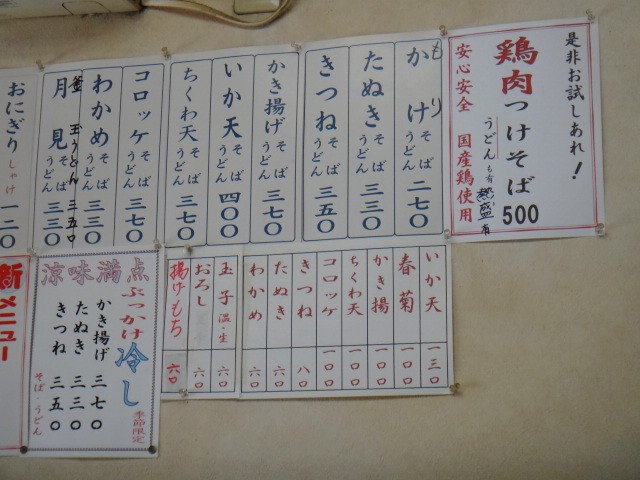 是非お試しあれ！
鶏肉つけそば500
うどんも有 熱盛有
安心安全 国産鶏使用
もり
かけ そば うどん 二七〇
たぬき そば うどん 三三〇
きつね そば うどん 三五〇
かき揚げ そば うどん 三七〇
いか天 そば うどん 四〇〇
ちくわ天 そば うどん 三七〇
コロッケ そば うどん 三七〇
わかめ そば うどん 三三〇
釜玉うどん 三五〇
月見 そば うどん 三三〇
おにぎり しゃけ 一二〇
いか天 一三〇
春菊 一〇〇
かき揚 一〇〇
ちくわ天 一〇〇
コロッケ 一〇〇
きつね 八〇
たぬき 六〇
わかめ 六〇
玉子 温・生 六〇
おろし 六〇
揚げもち 六〇
涼味満点
ぶっかけ冷し
季節限定
かき揚げ 三七〇
たぬき 三三〇
きつね 三五〇
そば・うどん
新メニュー